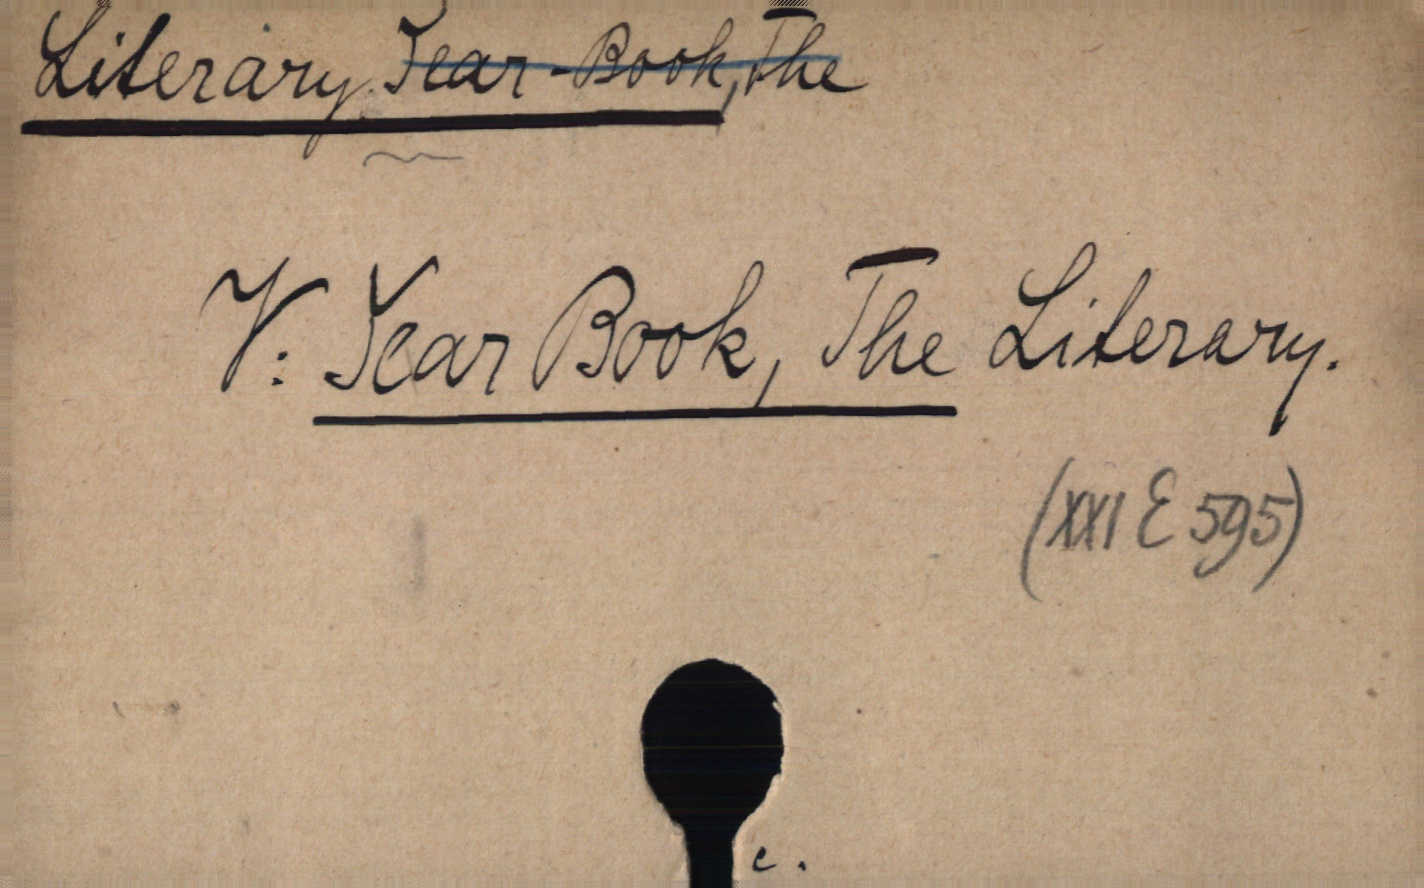 Literary Year-Book, The
V: Year Book, The Literary.
(XXI E 595)
c.